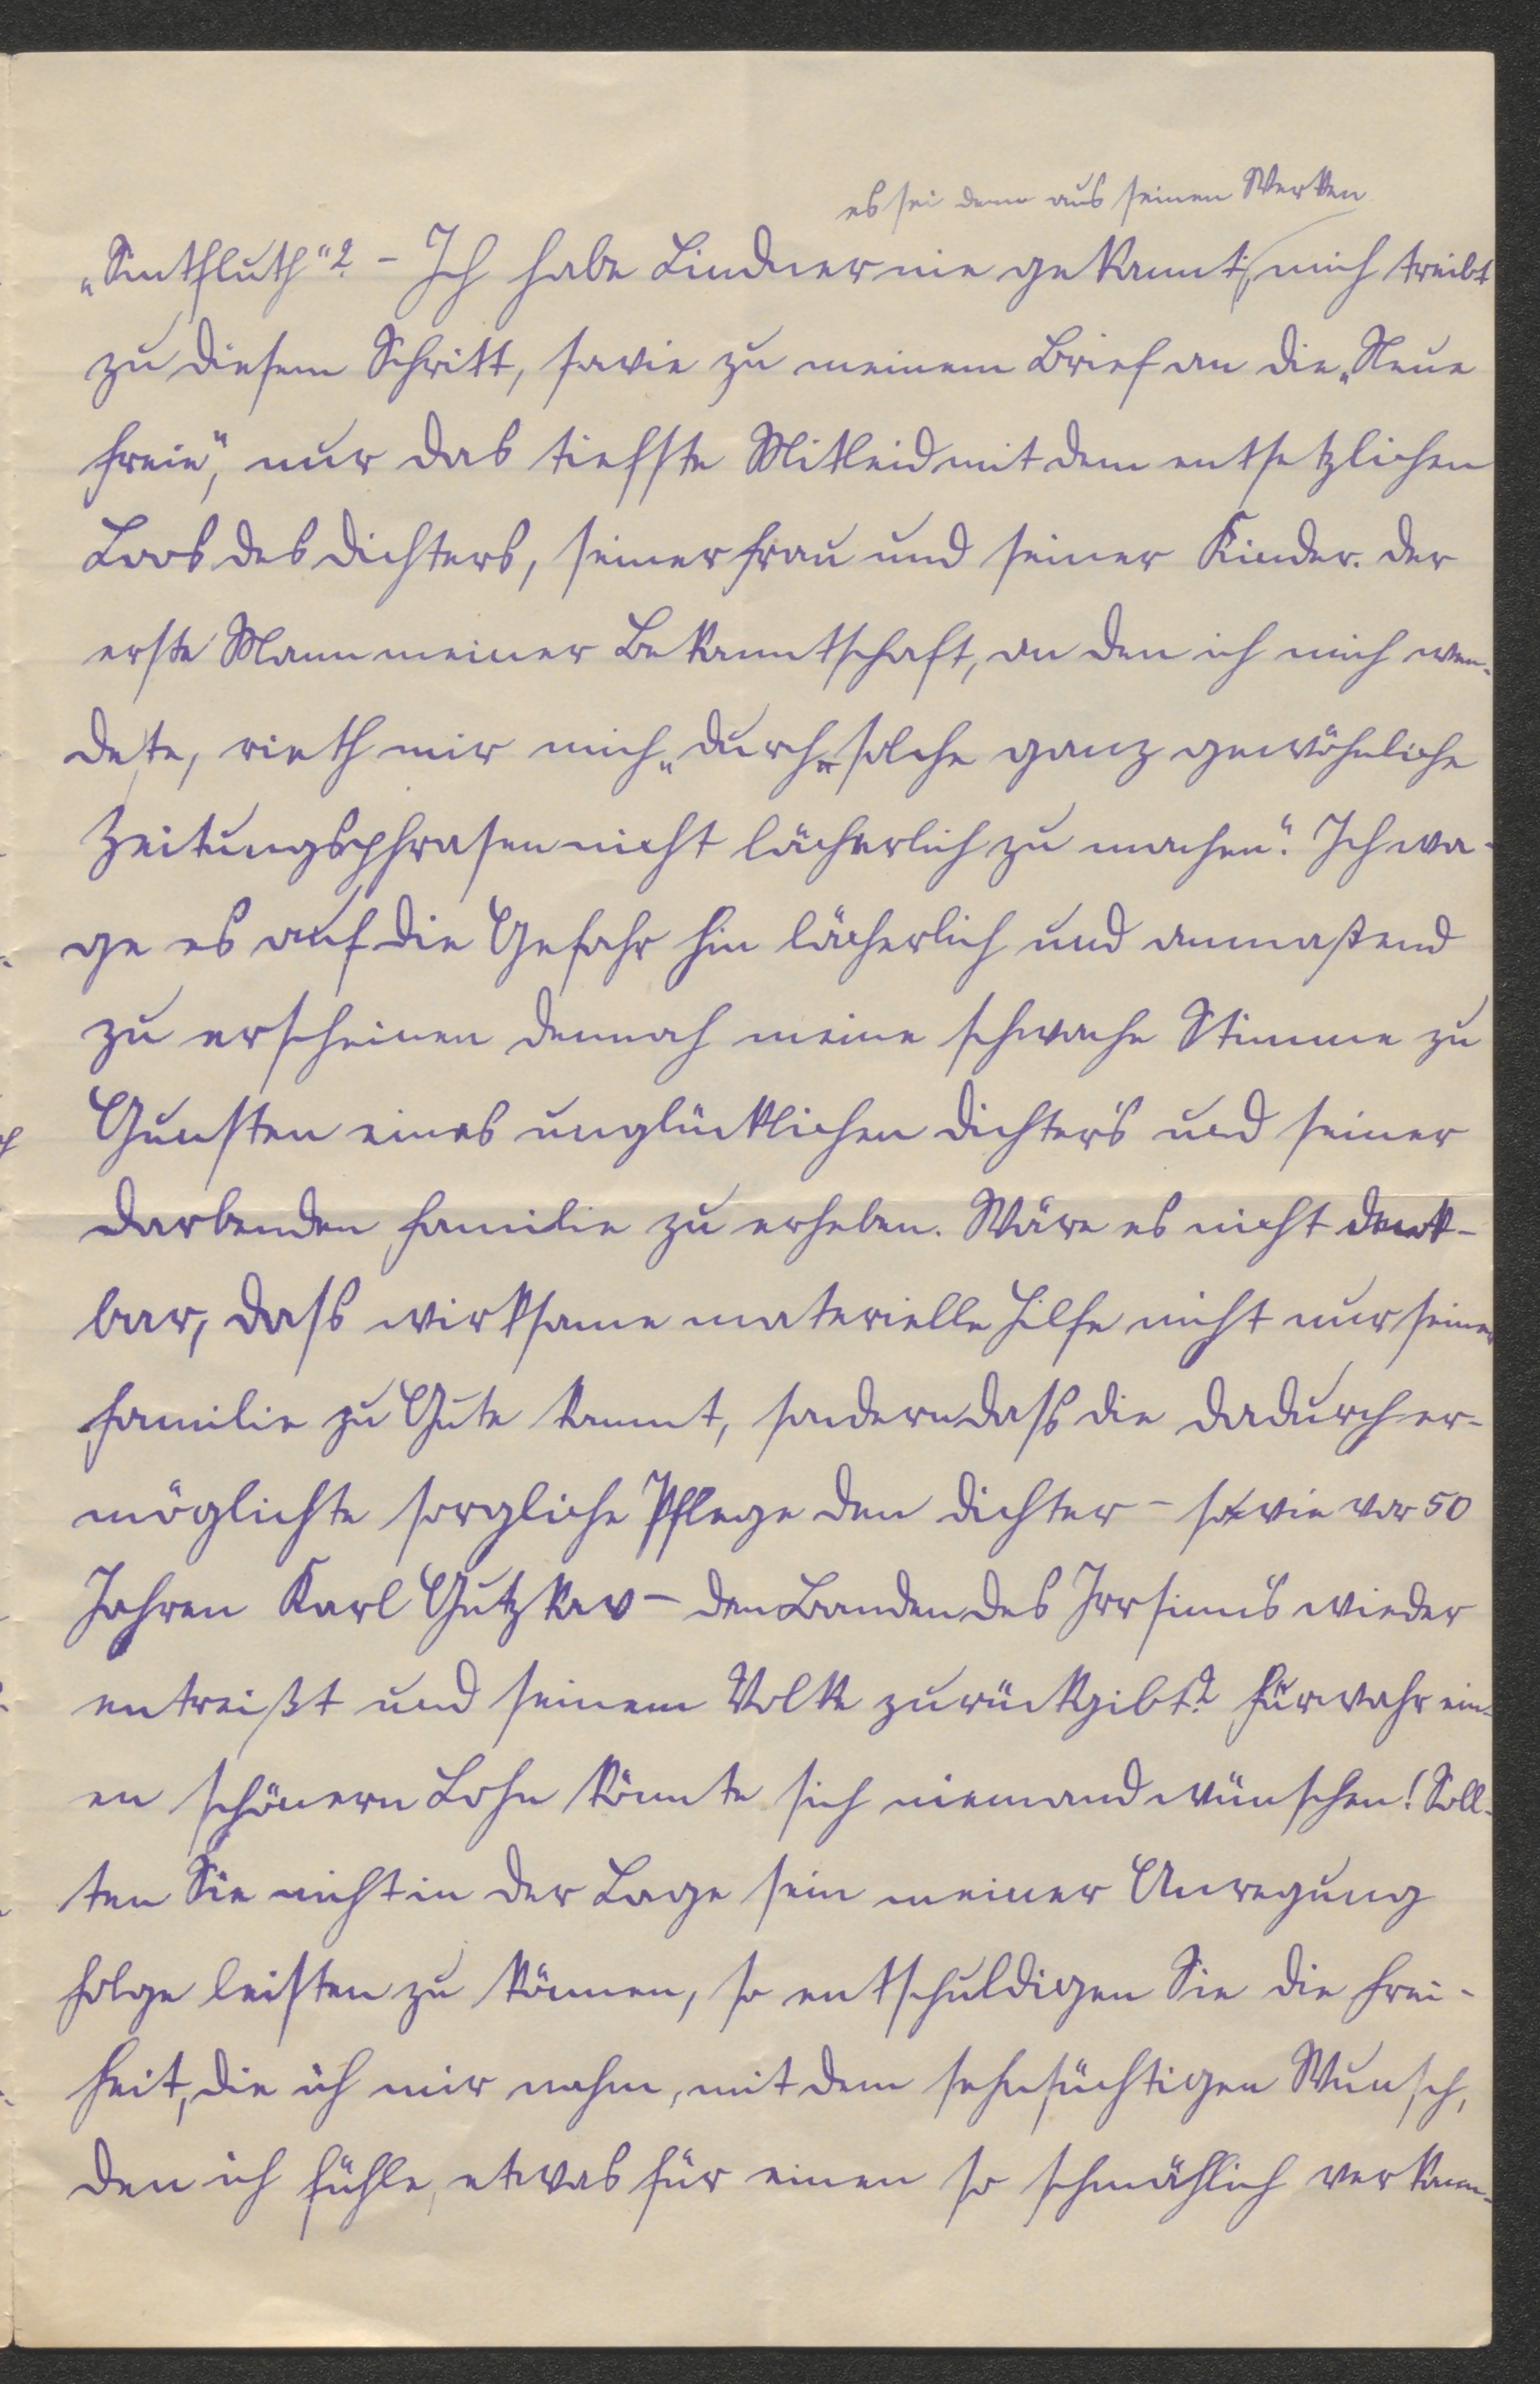 es sei denn aus seinen Werken
„Sintfluth“? – Ich habe Lindner nie gekannt, mich treibt
zu diesem Schritt, sowie zu meinem Brief an die „Neue
Freie“, nur das tiefste Mitleid mit dem entsetzlichen
Loos des Dichters, seiner Frau und seiner Kinder. Der
erste Mann meiner Bekanntschaft, an den ich mich wen-
dete, rieth mir mich „durch „solche ganz gewöhnliche
Zeitungsphrasen nicht lächerlich zu machen“. Ich wa-
ge es auf die Gefahr hin lächerlich und anmaßend
zu erscheinen dennoch meine schwache Stimme zu
Gunsten eines unglücklichen Dichter's und seiner
darbenden Familie zu erheben. Wäre es nicht denk-
bar, dass wirksame materielle Hilfe nicht nur seiner
Familie zu Gute kommt, sondern dass die dadurch er-
möglichte sorgliche Pflege den Dichter – so wie vor 50
Jahren Karl Gutzkow – den Banden des Irrsinn's wieder
entreißt und seinem Volke zurückgibt? Fürwahr ein-
en schönern Lohn könnte sich niemand wünschen! Soll-
ten Sie nicht in der Lage sein meiner Anregung
Folge leisten zu können, so entschuldigen Sie die Frei-
heit, die ich mir nahm, mit dem sehnsüchtigen Wunsch,
den ich fühle, etwas für einen so schmählich verkann-